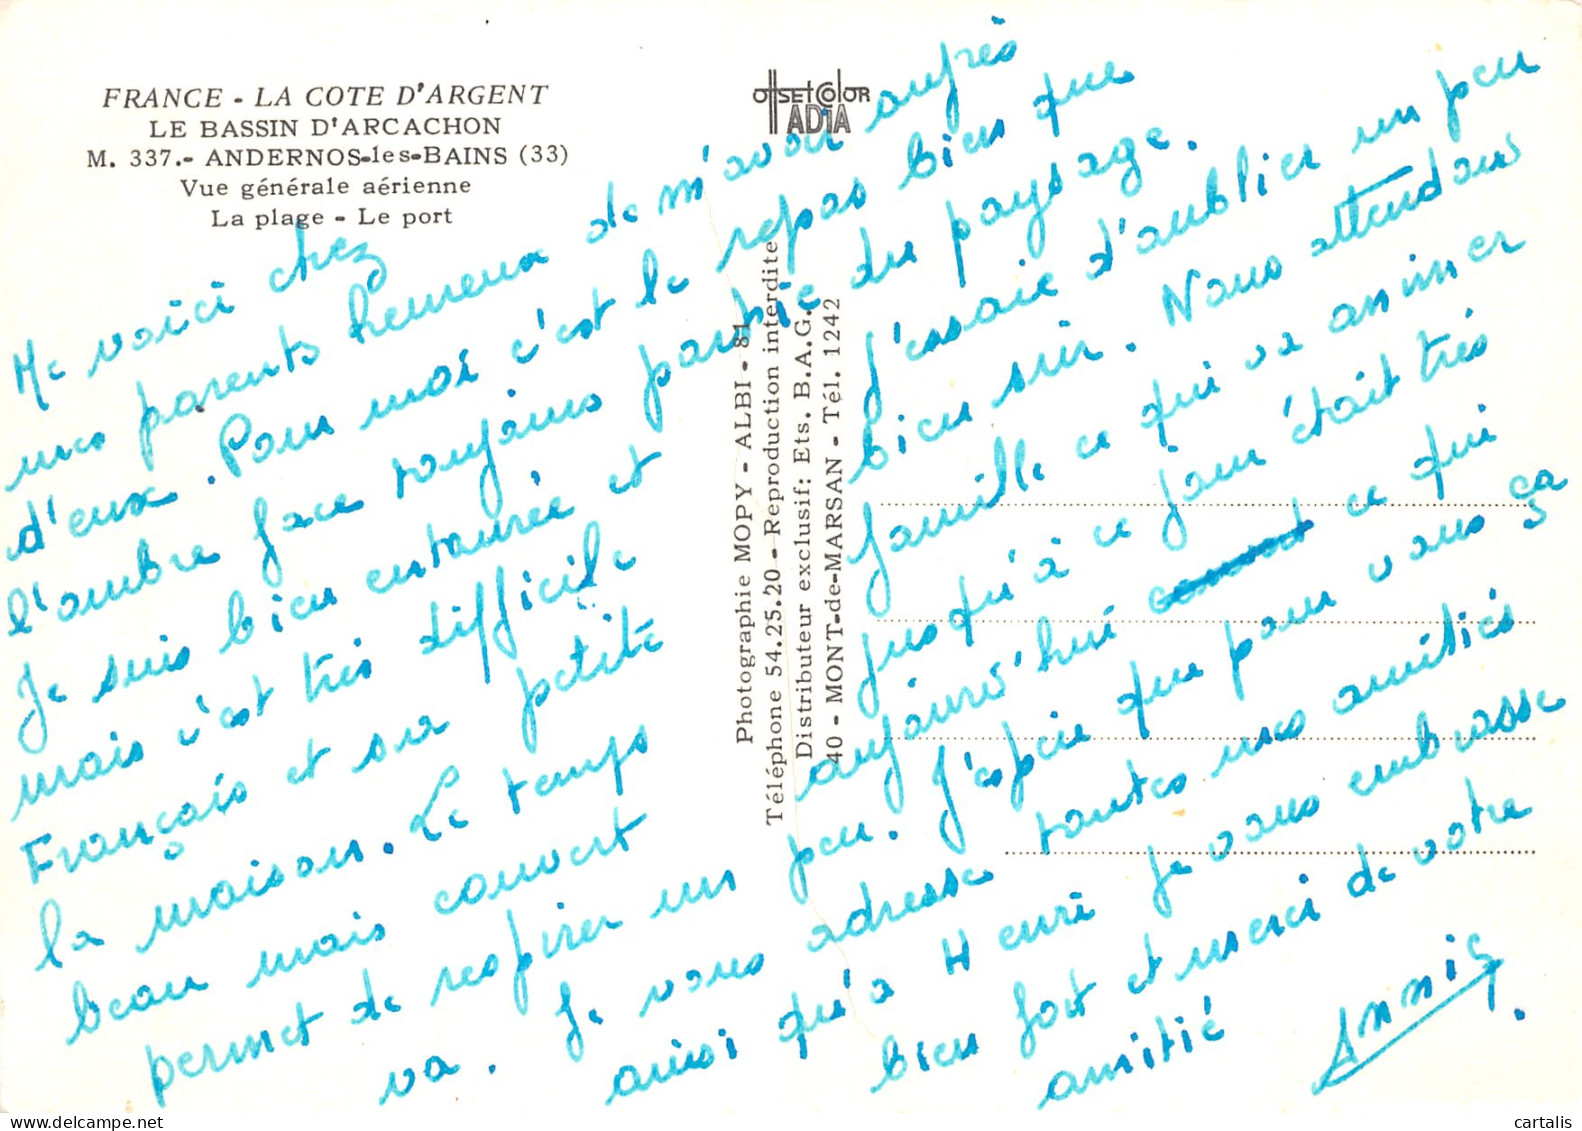 FRANCE - LA COTE D'ARGENT
LE BASSIN D'ARCACHON
M. 337.- ANDERNOS-les-BAINS (33)
Vue générale aérienne
La plage - Le port
OffsetColor
ADIA
Photographie MOPY - ALBI - 81
Téléphone 54.25.20 - Reproduction interdite
Distributeur exclusif: Ets. B.A.G.
40 - MONT-de-MARSAN - Tél. 1242
Me voici chez
mes parents heureux de m'avoir auprès
d'eux. Pour moi c'est le repas bien que
l'ombre fasse toujours partie du paysage.
Je suis bien entourée et
mais c'est très difficile
Français et sa petite
la maison. Le temps
beau mais couvert
permet de respirer un peu. J'espère que pour vous ça
va. Je vous adresse toutes mes amitiés
ainsi qu'à Henri je vous embrasse
bien fort et merci de votre
amitié
Annie
J'essaie d'oublier un peu
bien sûr. Nous attendons
famille ce qui va animer
jusqu'à ce jour était très
aujourd'hui ce qui
cartalis
delcampe.net